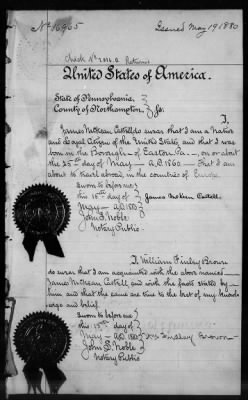 No 16965
Issued May 19 1880
United States of America.
State of Pennsylvania, }
County of Northampton, } Ss:
I, James McKean
do swear that I am a Native
and Loyal Citizen of the United States, and that I was
born in the Borough of Easton Pa. on or about
the 25th day of May A.D. 1860 - That I am
about to travel abroad, in the countries of Europe.
Sworn to before me }
this 15th day of } James McKean
May A.D. 1880 }
John S. Noble
Notary Public
I, William Finley Brown
do swear that I am acquainted with the above named
James McKean and with the facts stated by
him and that the same are true to the best of my knowl-
edge and belief.
Sworn to before me }
this 15th day of }
May A.D. 1880 } Wm Findley Brown
John S. Noble
Notary Public